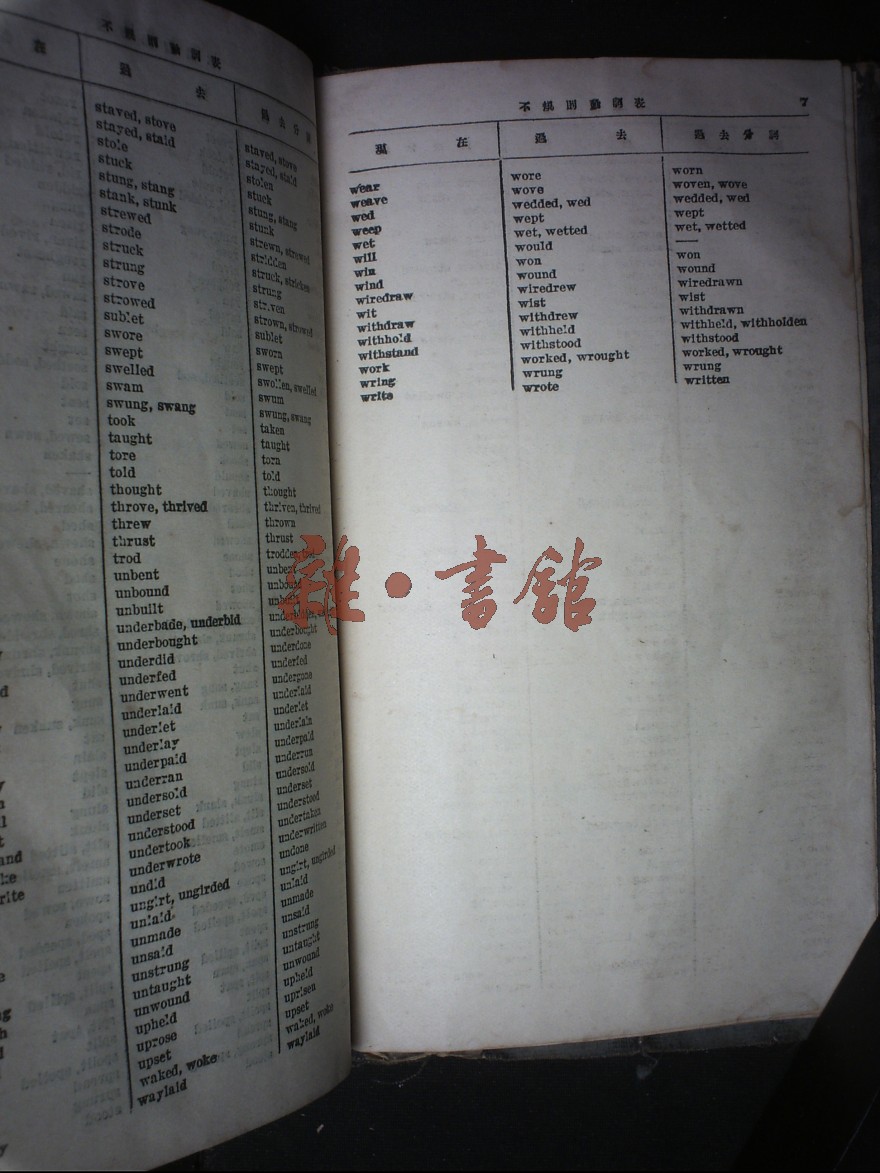 不規則動詞表
在 過去 過去分詞
staved, stove staved, stove
stayed, staid stayed, staid
stole stolen
stuck stuck
stung, stang stung, stang
stank, stunk stunk
strewed strewn, strewed
strode stridden
struck struck, stricken
strung strung
strove striven
strowed strown, strowed
sublet sublet
swore sworn
swept swept
swelled swollen, swelled
swam swum
swung, swang swung, swang
took taken
taught taught
tore torn
told told
thought thought
throve, thrived thriven, thrived
threw thrown
thrust thrust
trod trodden
unbent unbent
unbound unbound
unbuilt
underbade, underbid
underbought underbought
underdid underdone
underfed underfed
underwent undergone
underlaid underlaid
underlet underlet
underlay underlain
underpaid underpaid
underran underrun
undersold undersold
underset underset
understood understood
undertook undertaken
underwrote underwritten
undid undone
ungirt, ungirded ungirt, ungirded
unlaid unlaid
unmade unmade
unsaid unsaid
unstrung unstrung
untaught untaught
unwound unwound
upheld upheld
uprose uprisen
upset upset
waked, woke waked, woke
waylaid waylaid
不規則動詞表 7
現在 過去 過去分詞
wear wore worn
weave wove woven, wove
wed wedded, wed wedded, wed
weep wept wept
wet wet, wetted wet, wetted
will would ——
win won won
wind wound wound
wiredraw wiredrew wiredrawn
wit wist wist
withdraw withdrew withdrawn
withhold withheld withheld, withholden
withstand withstood withstood
work worked, wrought worked, wrought
wring wrung wrung
write wrote written
雜·書館